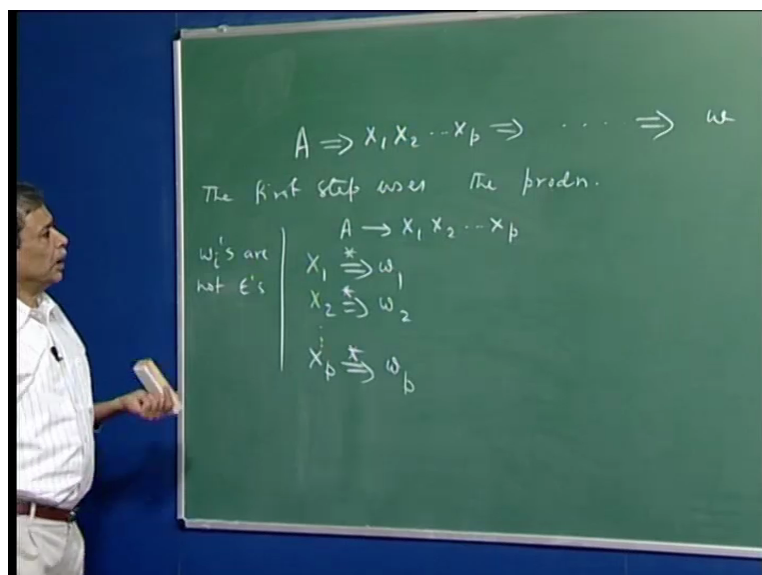 A ⇒ X₁ X₂ ... Xₚ ⇒ .... ⇒ w
The first step uses the prodn.
A → X₁ X₂ ... Xₚ
wᵢ's are not ϵ's
X₁ *⇒ w₁
X₂ *⇒ w₂
⋮
Xₚ *⇒ wₚ